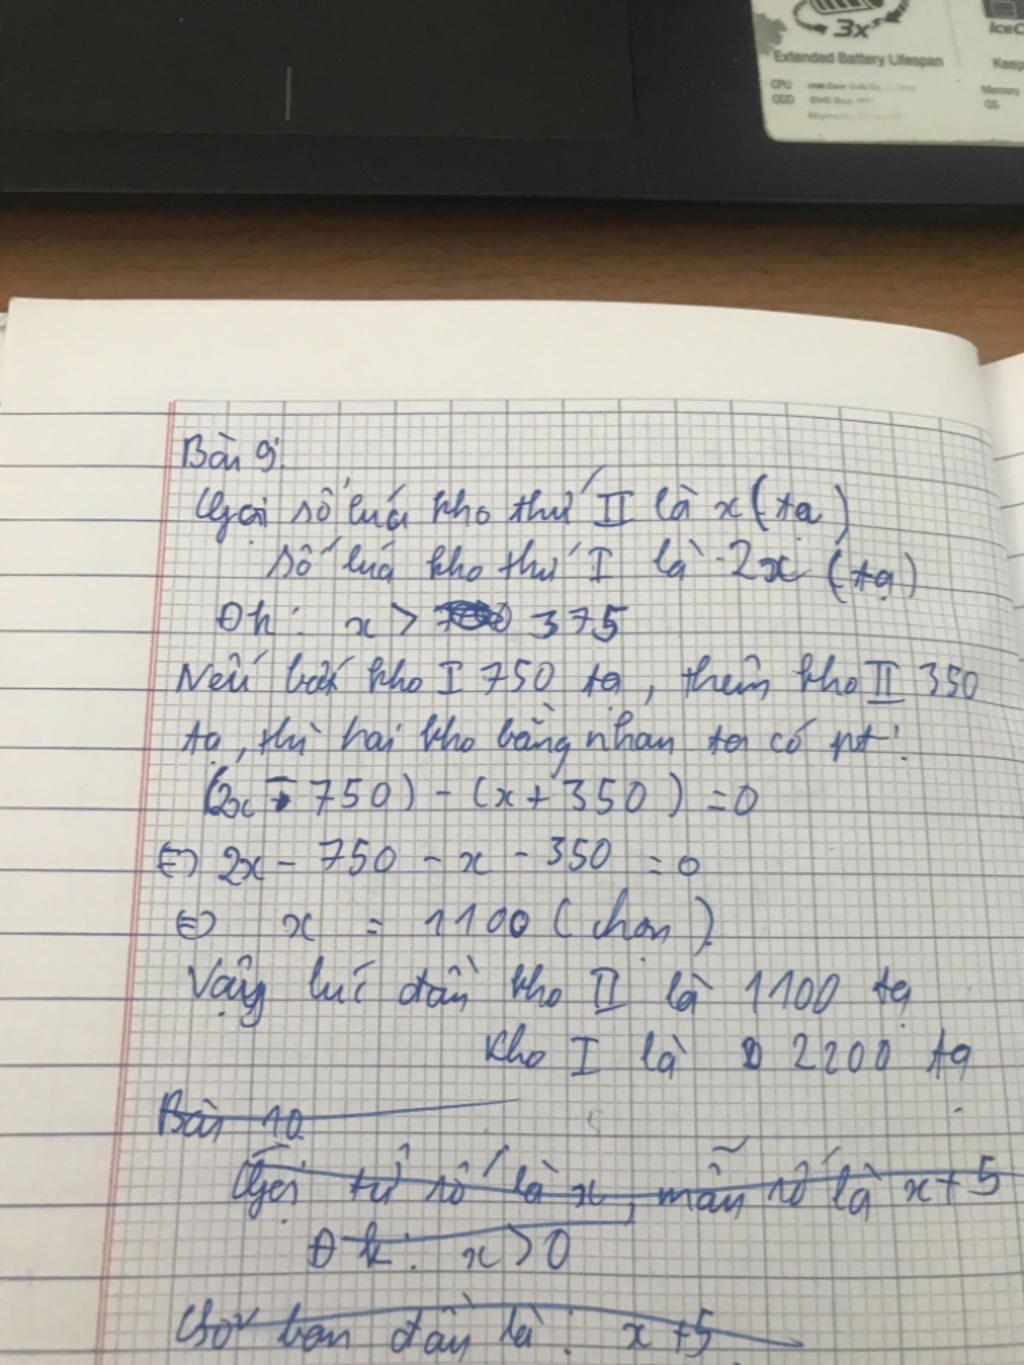 3x
IceC
Extended Battery Lifespan
Keep
CPU
Memory
ODD
OS
Bài 9:
Gọi số lúa kho thứ II là x (tạ)
số lúa kho thứ I là 2x (tạ)
Đk: x > 375
Nếu bớt kho I 750 tạ, thêm kho II 350
tạ, thì hai kho bằng nhau ta có pt:
(2x - 750) - (x + 350) = 0
⇔ 2x - 750 - x - 350 = 0
⇔ x = 1100 (chọn)
Vậy lúc đầu kho II là 1100 tạ
kho I là 2200 tạ
Bài 10
Gọi tử số là x, mẫu số là x+5
Đk: x > 0
ban đầu là: x+5